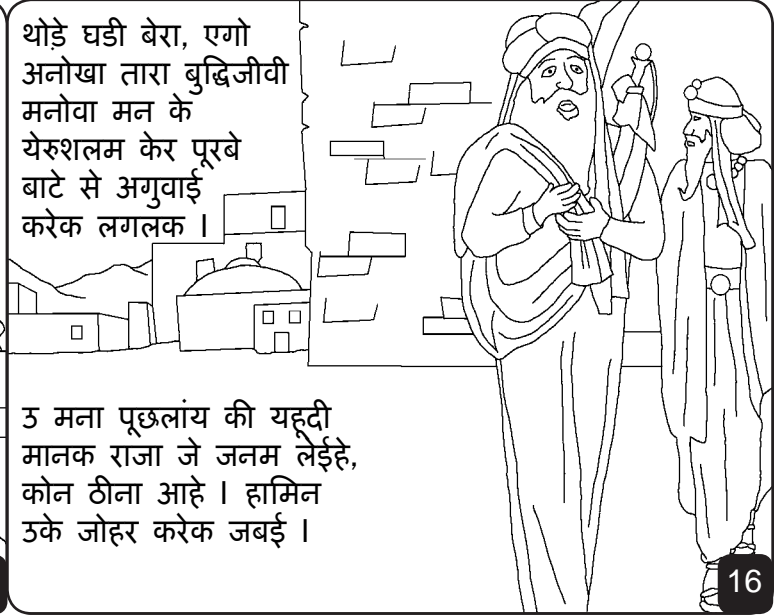 थोड़े घडी बेरा, एगो
अनोखा तारा बुद्धिजीवी
मनोवा मन के
येरुशलम केर पूरबे
बाटे से अगुवाई
करेक लगलक ।
उ मना पूछलांय की यहूदी
मानक राजा जे जनम लेईहे,
कोन ठीना आहे । हामिन
उके जोहर करेक जबई ।
16